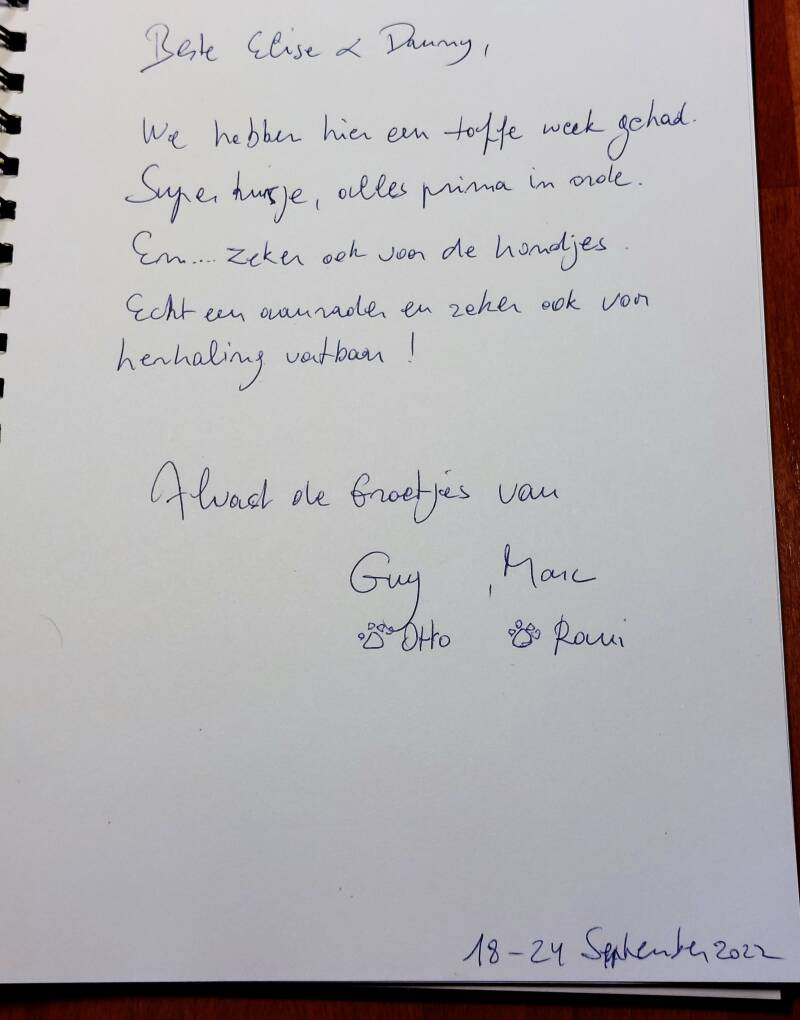 Beste Elise & Danny,
We hebben hier een toffe week gehad.
Super huisje, alles prima in orde.
En.... zeker ook voor de hondjes.
Echt een aanrader en zeker ook voor
herhaling vatbaar !
Alvast de Groetjes van
Guy , Marc
Otto Romi
18-24 September 2022